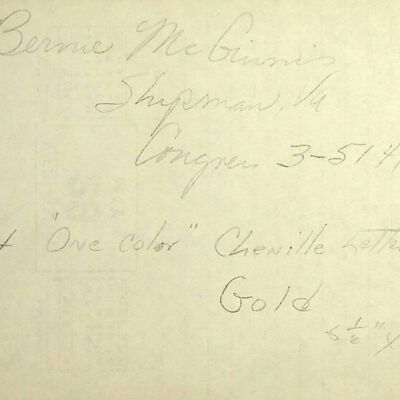 Bernie McGinnis
Shipman, Va
Congress 3-514
"One color" Chenille Lette
Gold
6 1/2" x